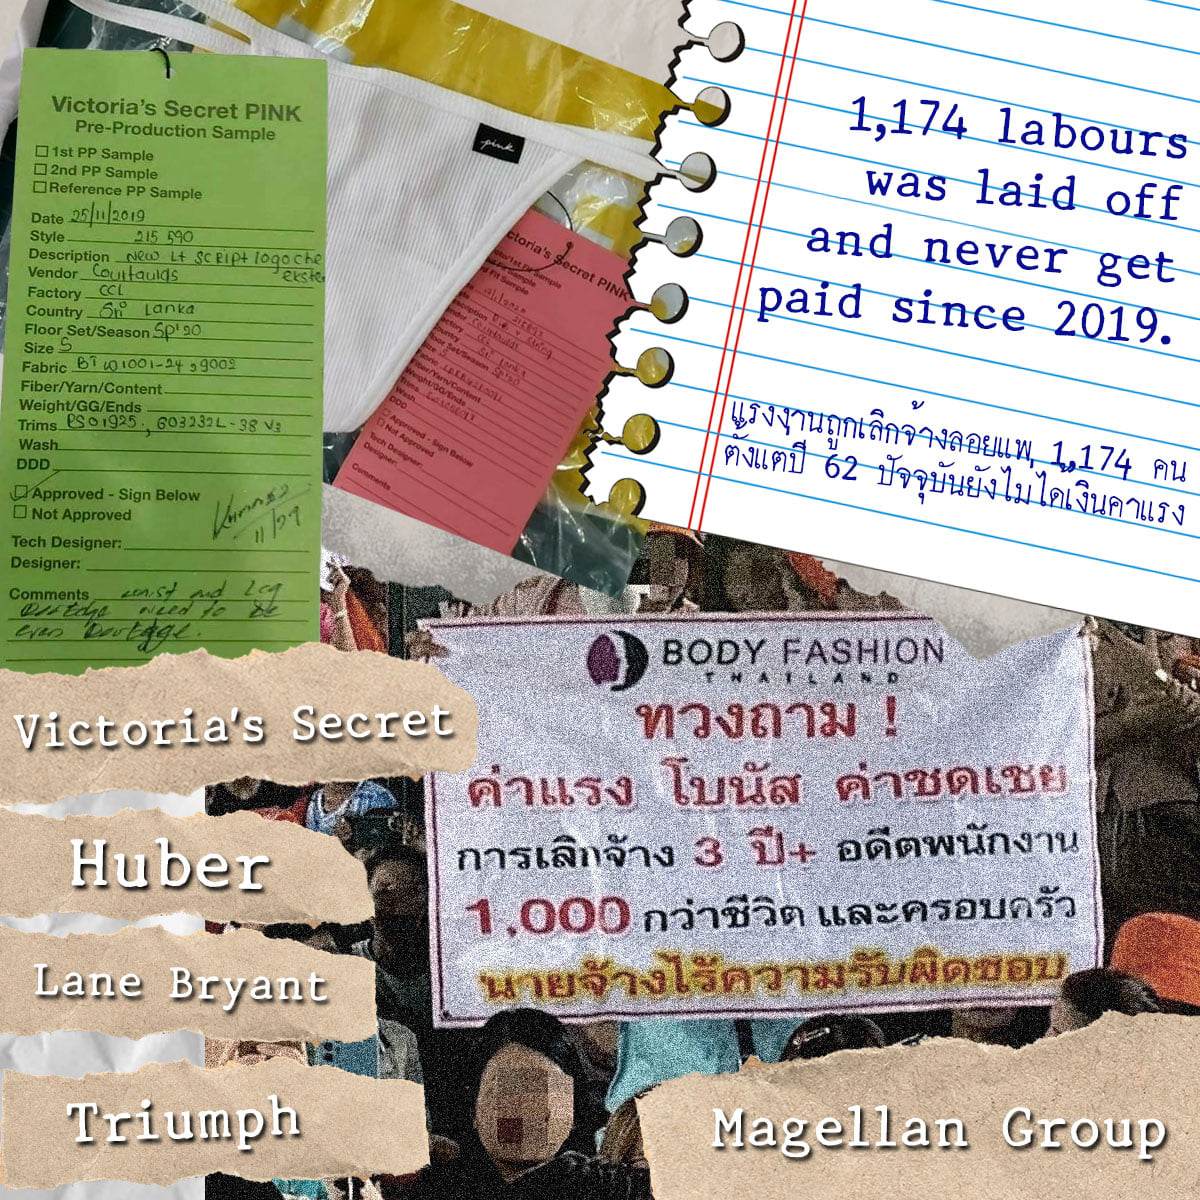 Victoria's Secret PINK
Pre-Production Sample
1st PP Sample
2nd PP Sample
Reference PP Sample
Date 25/11/2019
Style 215 590
Description New Lt Script logo che
Vendor Courtaulds
Factory CCL
Country Sri Lanka
Floor Set/Season Sp'20
Size S
Fabric
Fiber/Yarn/Content
Weight/GG/Ends
Trims
Wash
DDD
Approved - Sign Below
Not Approved
11/29
Tech Designer:
Designer:
Comments waist and Leg
need to be
even
pink
Victoria's Secret PINK
Sample
Fit Sample
Country Sri Lanka
Floor Set/Season Sp'20
Fiber/Yarn/Content
Weight/GG/Ends
Trims
Wash
DDD
Approved - Sign Below
Not Approved
Tech Designer:
Designer:
Comments
1,174 labours
was laid off
and never get
paid since 2019.
แรงงานถูกเลิกจ้างลอยแพ 1,174 คน
ตั้งแต่ปี 62 ปัจจุบันยังไม่ได้เงินค่าแรง
BODY FASHION
THAILAND
ทวงถาม !
ค่าแรง โบนัส ค่าชดเชย
การเลิกจ้าง 3 ปี+ อดีตพนักงาน
1,000 กว่าชีวิต และครอบครัว
นายจ้างไร้ความรับผิดชอบ
Victoria's Secret
Huber
Lane Bryant
Triumph
Magellan Group